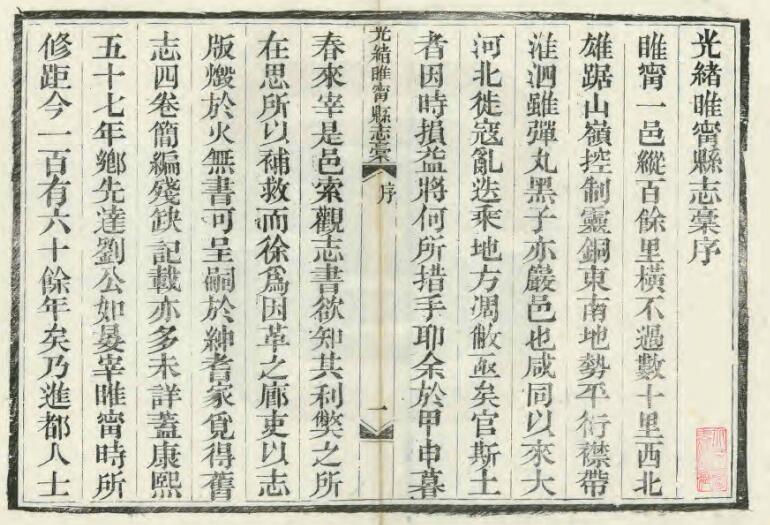 光緒睢甯縣志稾序
睢甯一邑縱百餘里橫不過數十里西北
雄踞山嶺控制靈銅東南地勢平衍襟帶
淮泗雖彈丸黑子亦嚴邑也咸同以來大
河北徙寇亂迭乘地方凋敝亟矣官斯土
者因時損益將何所措手耶余於甲申暮
光緒睢甯縣志稾
序
一
春來宰是邑索觀志書欲知其利弊之所
在思所以補救而徐爲因革之廊吏以志
版燬於火無書可呈嗣於紳耆家覓得舊
志四卷簡編殘缺記載亦多未詳蓋康熙
五十七年鄉先達劉公如晏宰睢甯時所
修距今一百有六十餘年矣乃進都人士